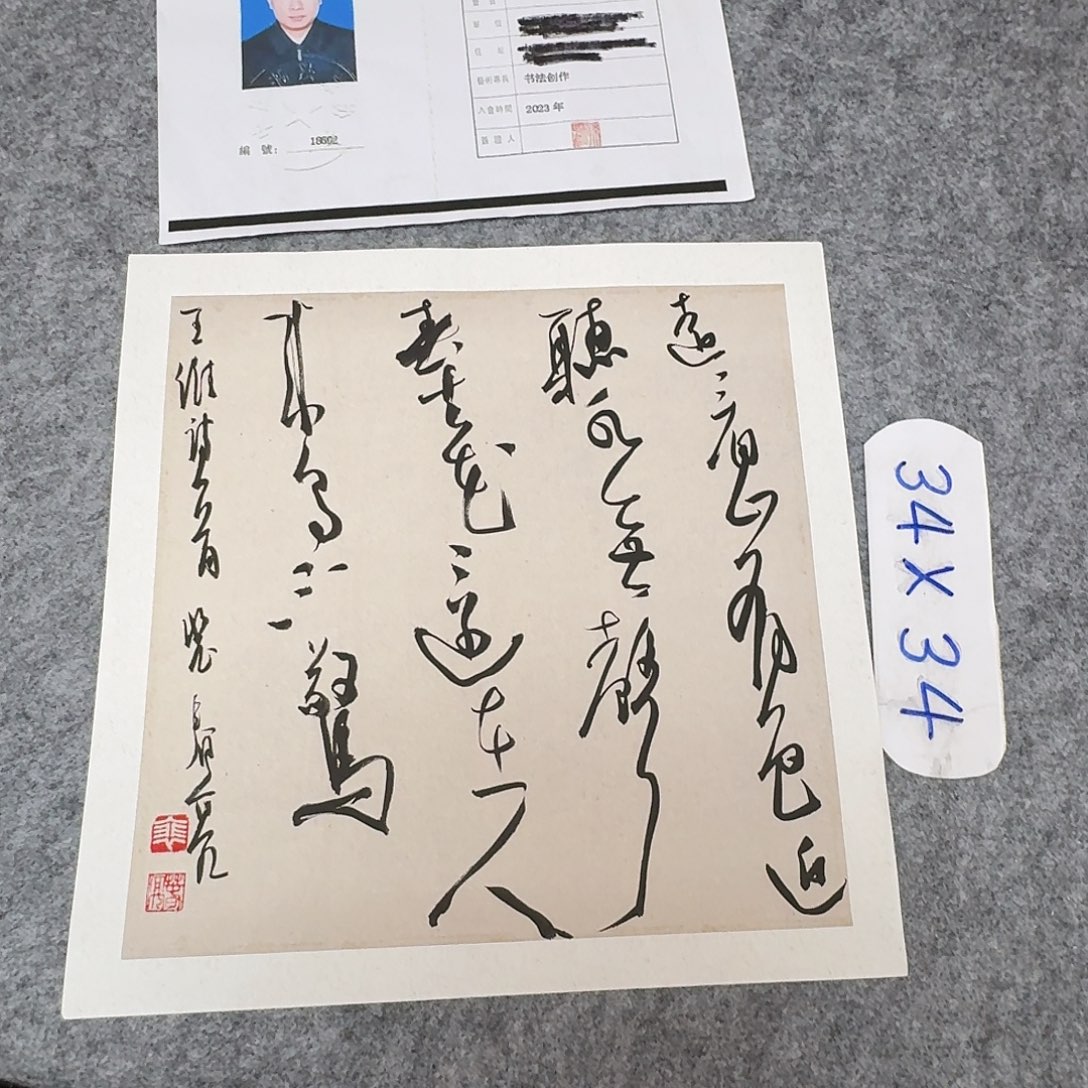 單 位
住 址
藝術專長 书法创作
入會時間 2023 年
簽證人
編 號:
遠看山有色近
聽水無聲
春去花還在人
來鳥不驚
王維詩一首
34 X 34